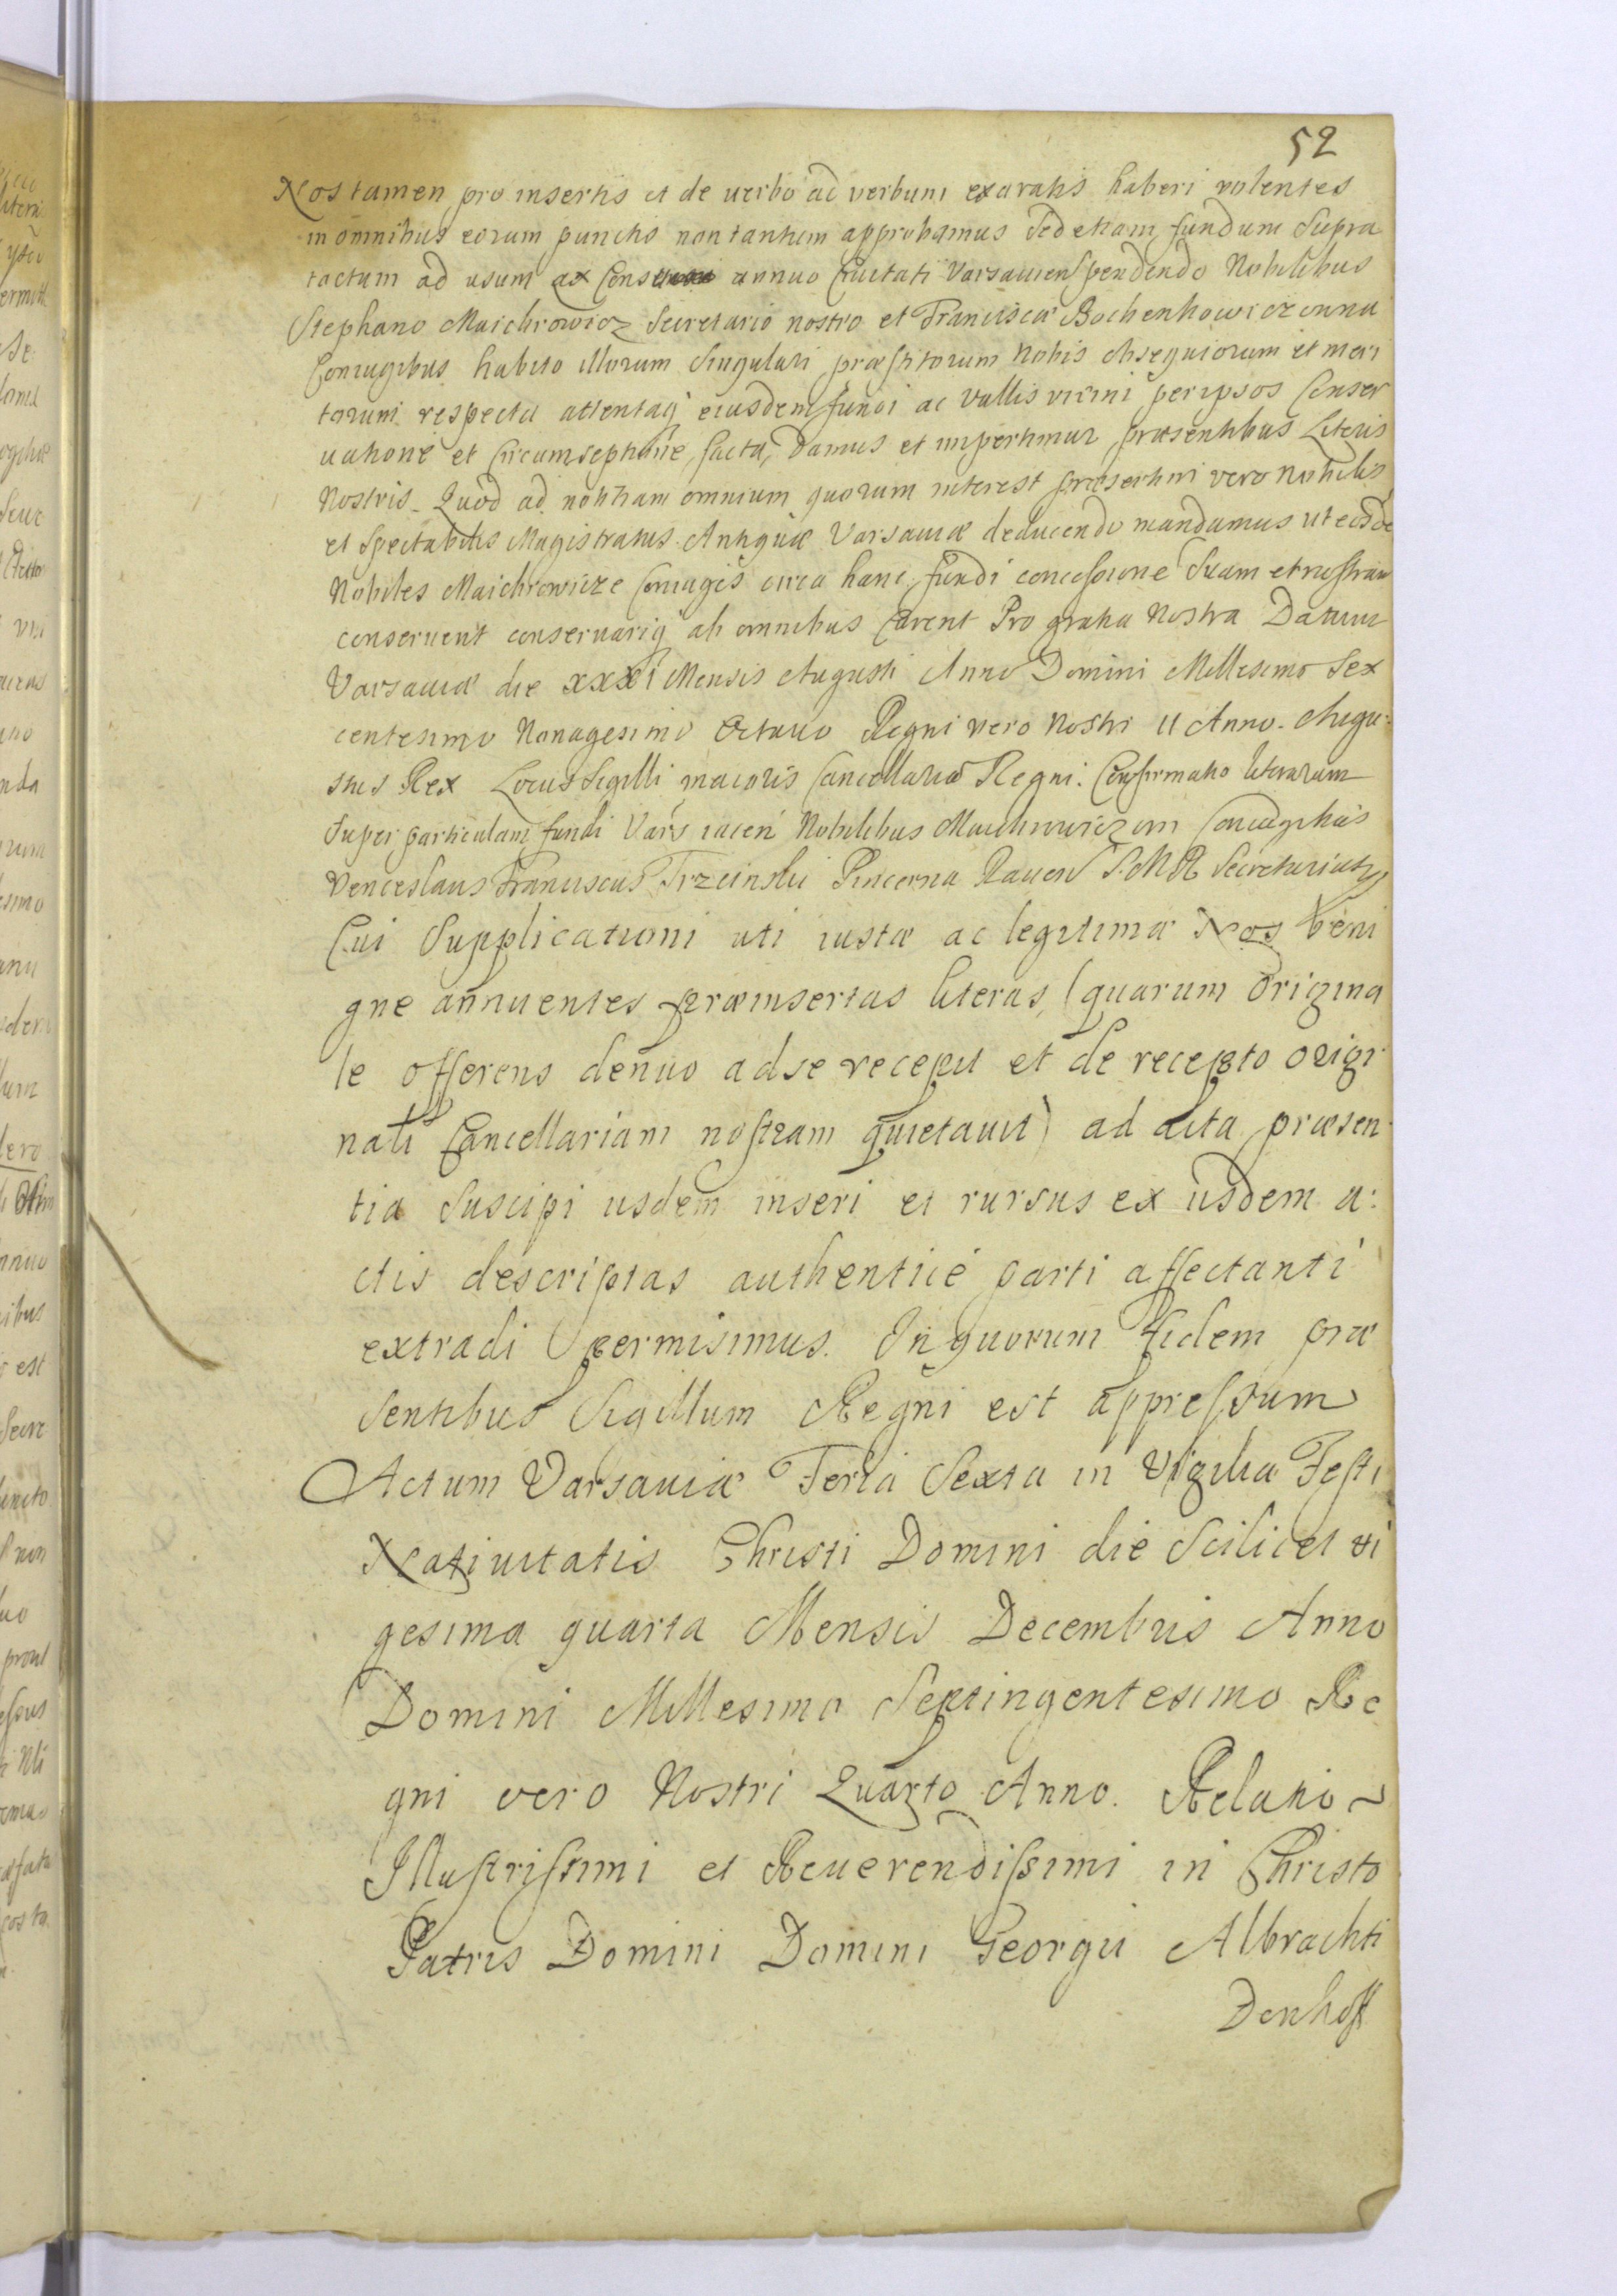 52
Nos tamen pro insertis et de uerbo ad verbum exaratis haberi volentes
in omnibus eorum punctis non tantum approbamus Sed etiam fundum Supra
tactum ad usum ex Censu annuo Ciuitati Varsauien pendendo Nobilibus
Stephano Maichrowicz Secretario nostro et Franciscæ Bochenkowiczonna
Coniugibus habito illorum Singulari præstitorum Nobis obsequiorum et meri
torum respectu attentaq eiusdem fundi ac Vallis vicini per ipsos Conser
uatione et Circumseptione facta, Damus et impertimur præsentibus Literis
Nostris. Quod ad notitiam omnium quorum interest præsertim vero Nobilis
et Spectabilis Magistratus Antiquæ Varsauiæ deducendo mandamus ut eosde
Nobiles Maichrowicze Coniuges circa hanc fundi concessione Suam et nostram
conseruent conseruariq ab omnibus Curent Pro gratia Nostra Datum
Varsauiæ die XXXI Mensis Augusti Anno Domini Millesimo Sex
centesimo Nonagesimo Octauo Regni vero Nostri II Anno. Augu:
stus Rex Locus Sigilli maioris Cancellariæ Regni. Confirmatio literarum
Super particulam fundi Vars iacen Nobilibus Maichrowiczom Coniugibus
Venceslaus Franciscus Trzcinski Pincerna Rauen S. M R Secretarius
Cui Supplicationi uti iustæ ac legitimæ Nos beni
gne annuentes præinsertas literas (quarum Origina
le offerens denuo ad se recepit et de recepto origi
nali Cancellariam nostram quietauit) ad acta præsen
tia Suscipi iisdem inseri et rursus ex iisdem a:
ctis descriptas authenticè parti affectanti
extradi permisimus. In quorum fidem præ
sentibus Sigillum Regni est appressum
Actum Varsauiæ Feria Sexta in Vigilia Festi
Natiuitatis Christi Domini die Scilicet vi
gesima quarta Mensis Decembris Anno
Domini Millesimo Septingentesimo Re
gni vero Nostri Quarto Anno. Relatio
Illustrissimi et Reuerendissimi in Christo
Patris Domini Domini Georgii Albrachti
Denhoff